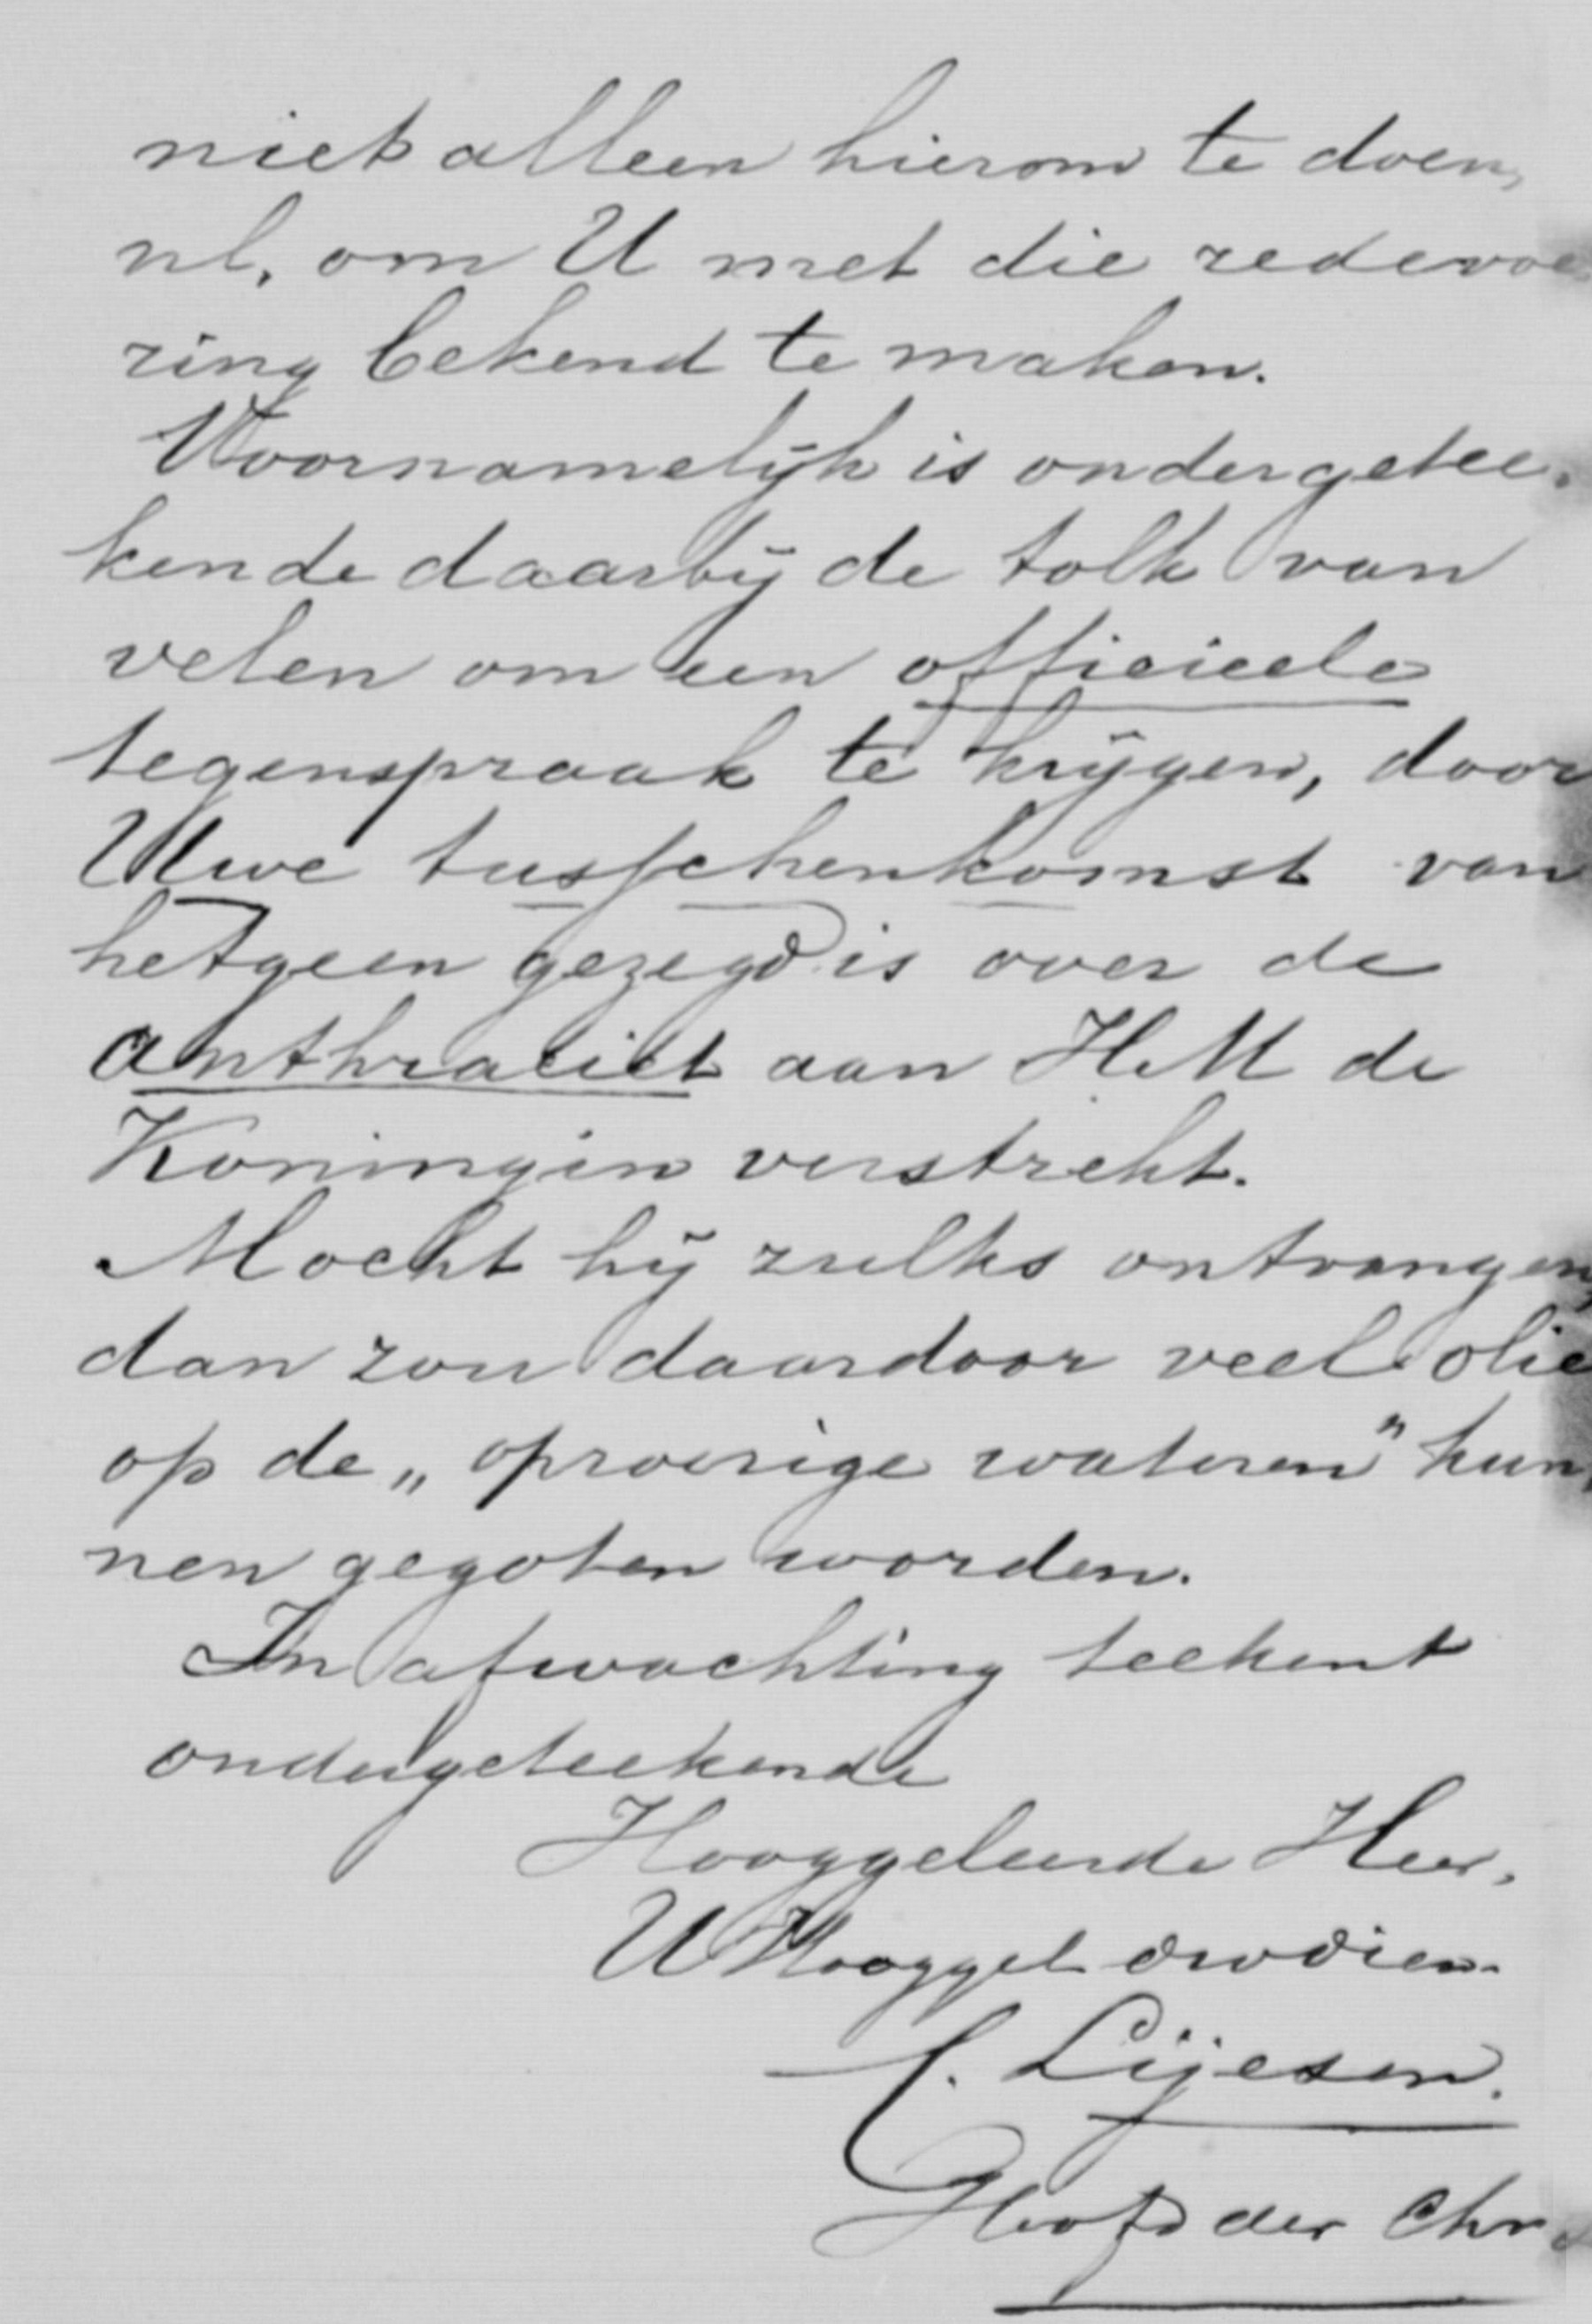 niet alleen hierom te doen,
nl. om U met die redevoe
ring bekend te maken.
Voornamelijk is ondergetee-
kende daarbij de tolk van
velen om een officieele
tegenspraak te krijgen, door
Uwe tusschenkomst van
hetgeen gezegd is over de
anthraciet aan H.M de
Koningin verstrekt.
Mocht hij zulks ontvangen,
dan zou daardoor veel olie
op de „oproerige wateren" kun
nen gegoten worden.
In afwachting teekent
ondergeteekende
Hooggeleerde Heer,
UHooggel dwdien.
C. Lijesen.
Hoofd der Chr.